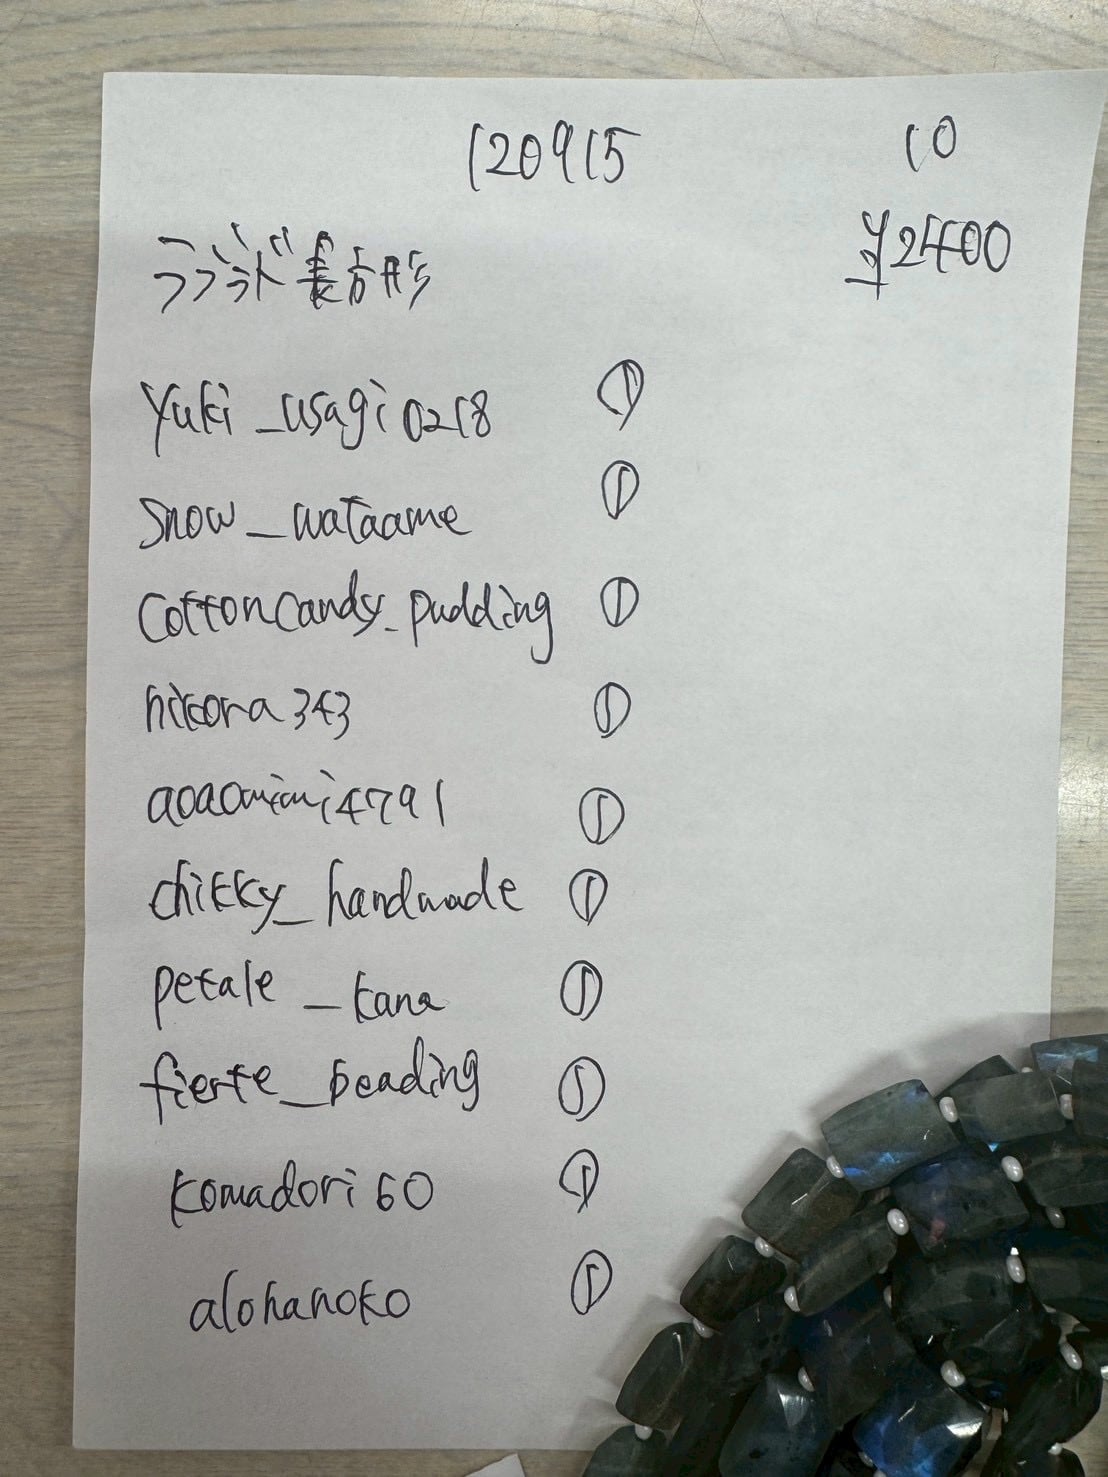 120915 10
¥2400
ラブラド長方形
Yuki_usagi0218 ①
Snow_wataame ①
Cottoncandy_pudding ①
nikora343 ①
aoaomimi4791 ①
chikky_handmade ①
petale_kana ①
fierte_beading ①
komadori60 ①
alohanoko ①